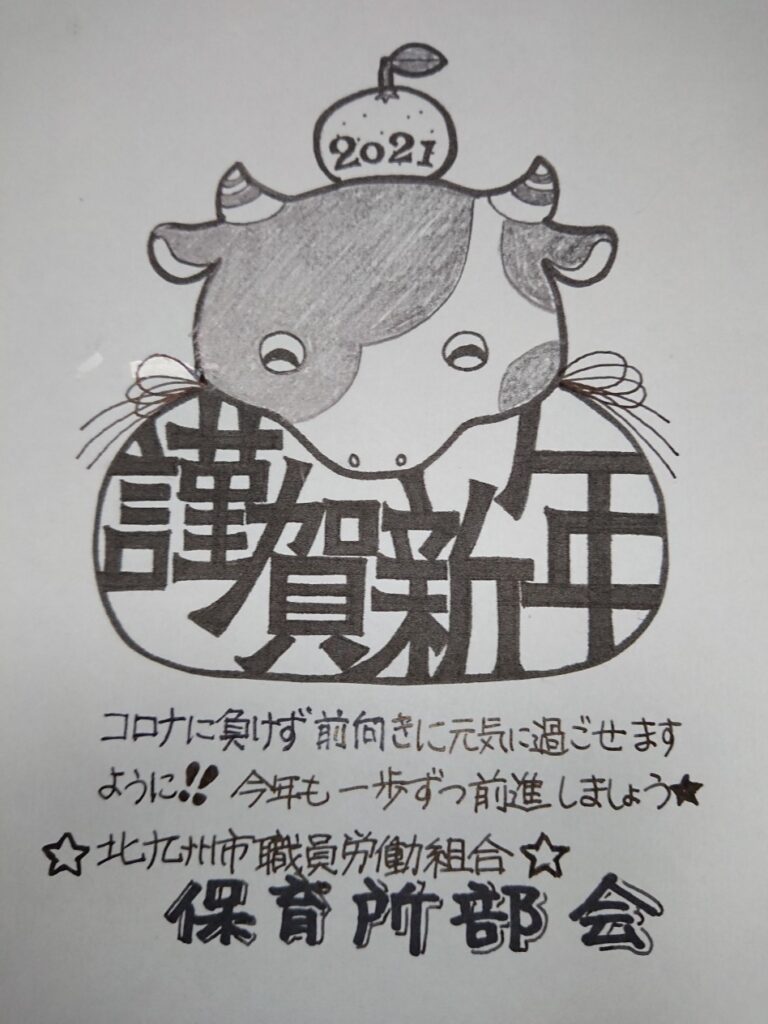 2021
謹賀新年
コロナに負けず前向きに元気に過ごせます
ように!! 今年も一歩ずつ前進しましょう★
☆北九州市職員労働組合☆
保育所部会